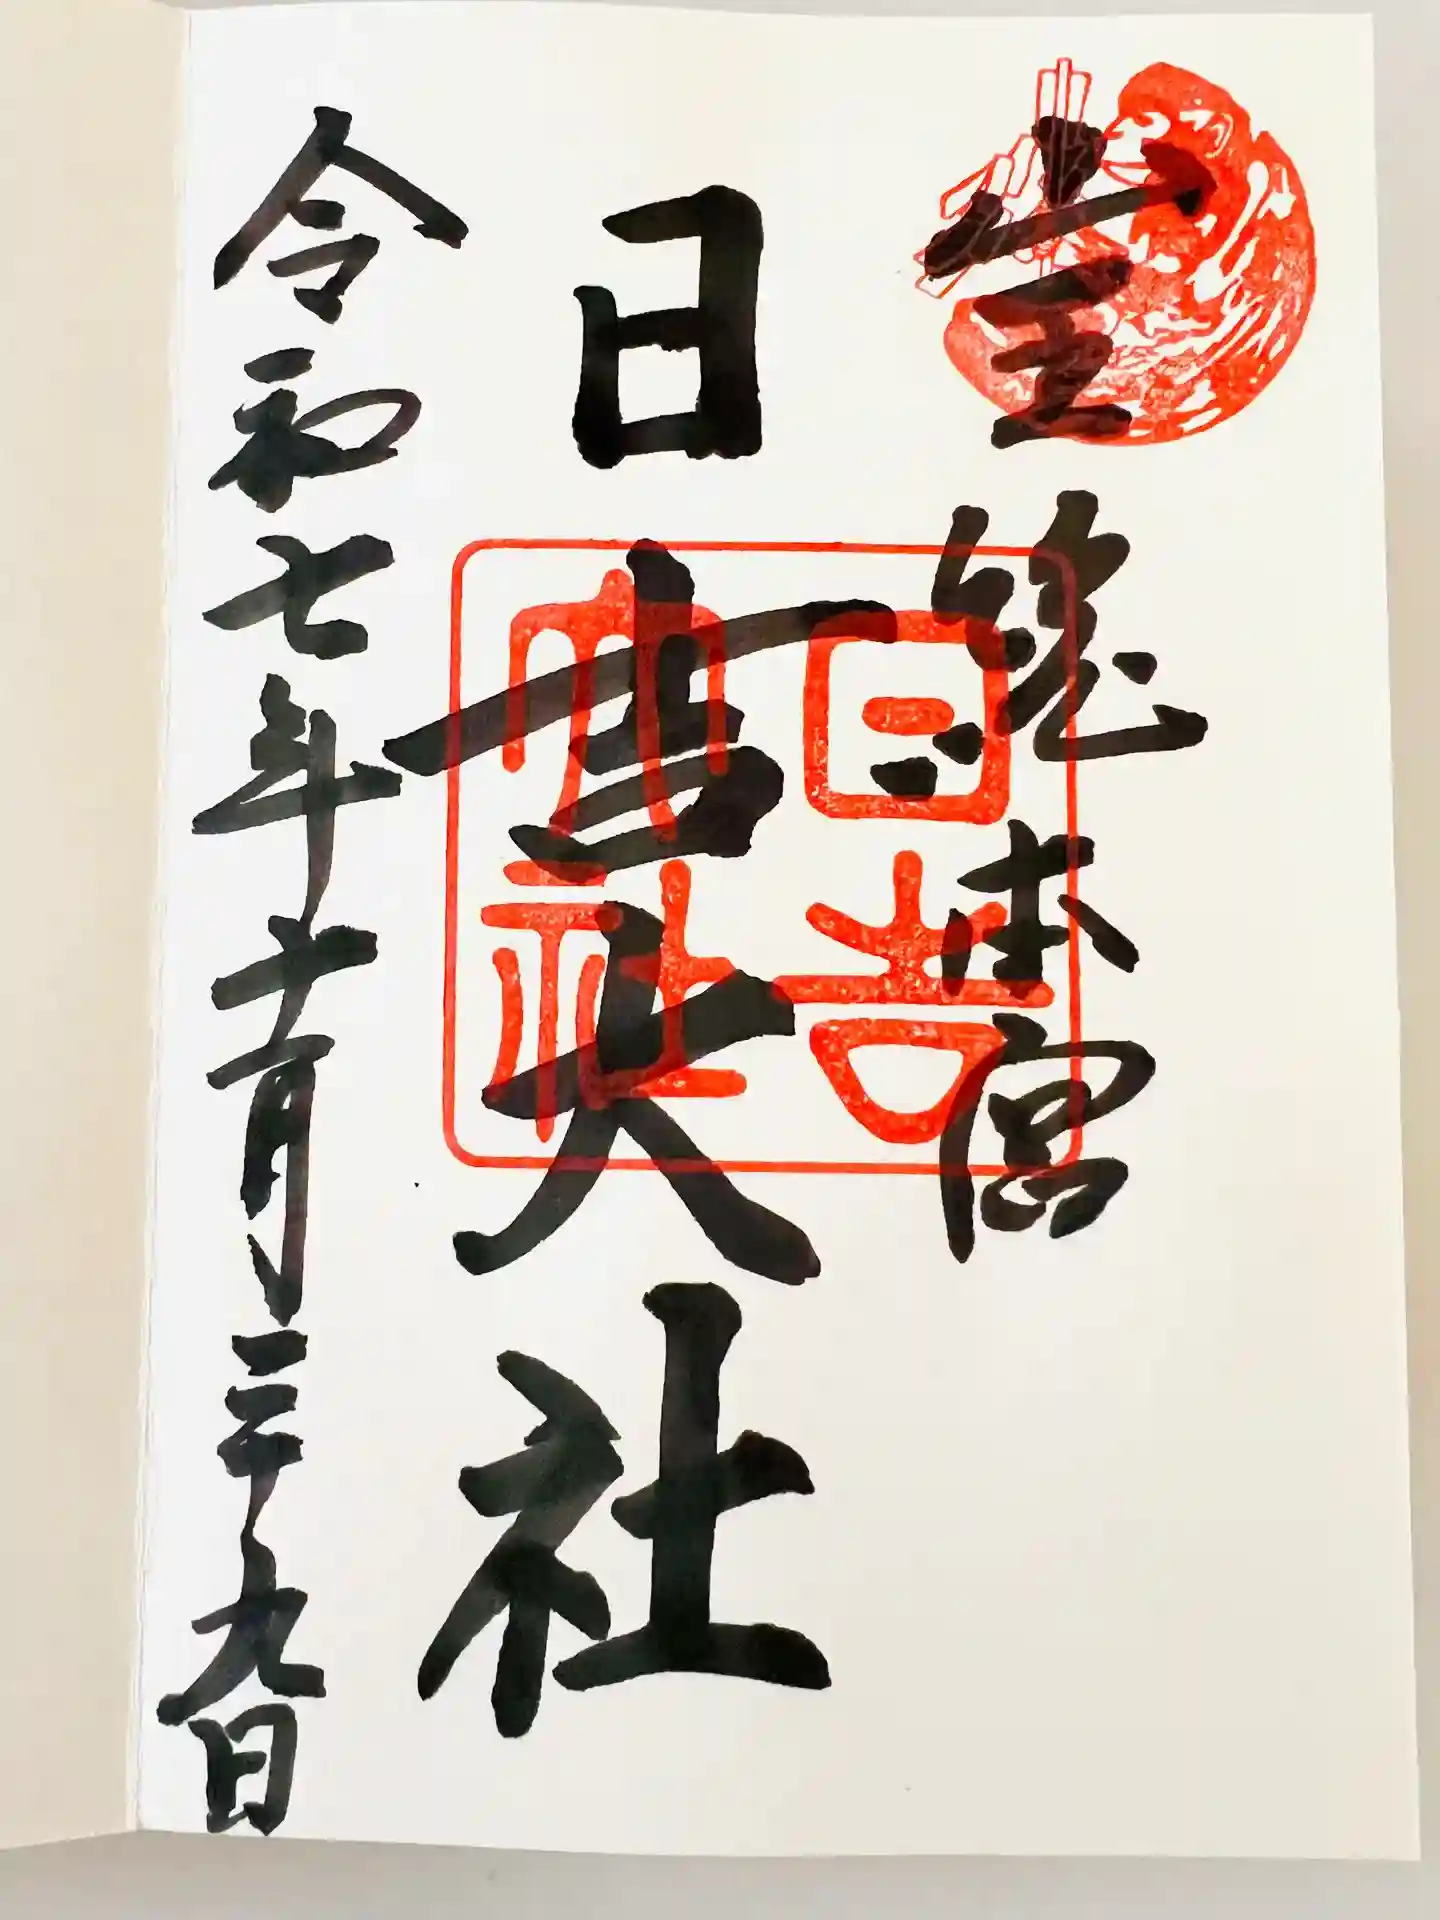 山王
総本宮
日吉大社
令和七年十一月二十九日
日吉
大社